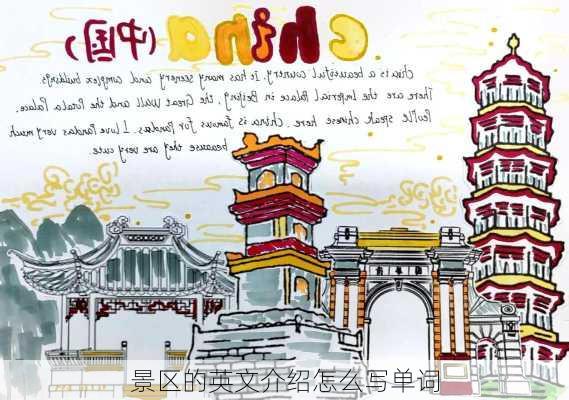 china (中国)
chia is a beautiful country. It has many scenery and complex buildings.
There are the Imperial Palace in Beijing, the Great Wall and the Potala Palace.
speak chinese here. china is famous for Pandas. I love Pandas very much
beacause they are very cute.
景区的英文介绍怎么写单词